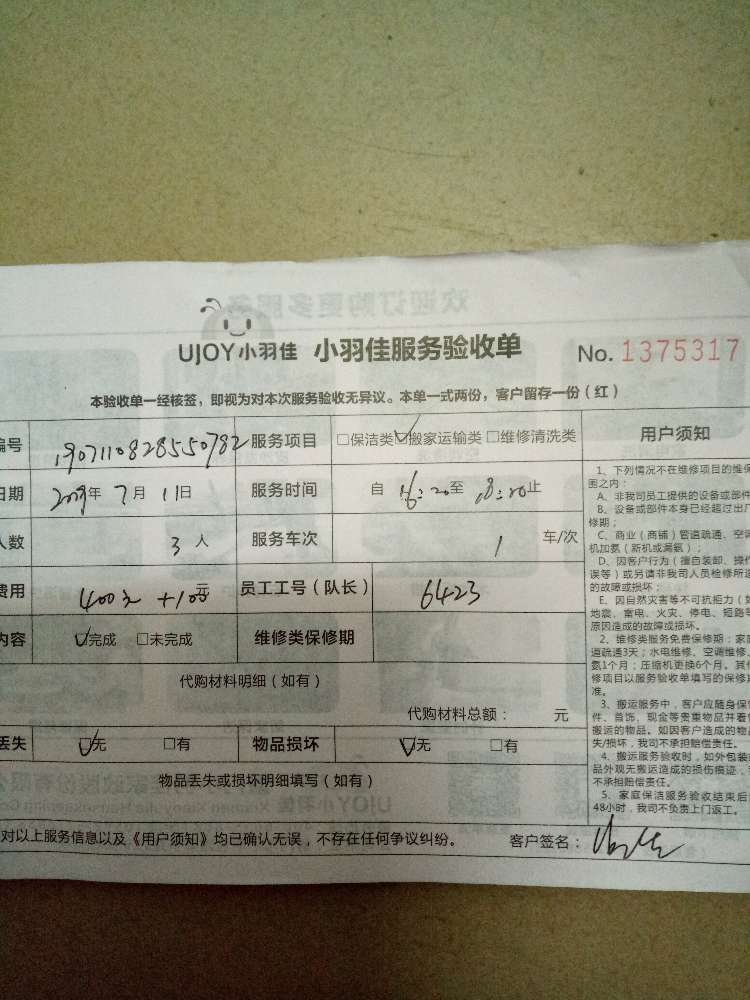 UJOY小羽佳 小羽佳服务验收单 No. 1375317
本验收单一经核签，即视为对本次服务验收无异议。本单一式两份，客户留存一份（红）
编号 1907110828550782 服务项目 □保洁类☑搬家运输类□维修清洗类 用户须知
日期 2019年7月11日 服务时间 自16:20至18:20止
人数 3人 服务车次 1 车/次
费用 400元+10元 员工工号（队长） 6423
内容 ☑完成 □未完成 维修类保修期
代购材料明细（如有）
代购材料总额： 元
丢失 ☑无 □有 物品损坏 ☑无 □有
物品丢失或损坏明细填写（如有）
对以上服务信息以及《用户须知》均已确认无误，不存在任何争议纠纷。 客户签名：
1、下列情况不在维修项目的维保
围之内：
A、非我司员工提供的设备或部件
B、设备或部件本身已经超过出厂
修期；
C、商业（商铺）管道疏通、空调
机加氨（新机或漏氨）；
D、因客户行为（擅自装卸、操作
误等）或另请非我司人员检修所造
的故障或损坏；
E、因自然灾害等不可抗拒力（如
地震、雷电、火灾、停电、短路等
原因造成的故障或损坏。
2、维修类服务免费保修期：家庭
道疏通3天；水电维修、空调维修、
氨1个月；压缩机更换6个月。其他
修项目以服务验收单填写的保修期
准。
3、搬运服务中，客户应随身保管
件、首饰、现金等贵重物品并看管
搬运的物品。如因客户造成的物品
失/损坏，我司不承担赔偿责任。
4、搬运服务验收时，如外包装或
品外观无搬运造成的损伤痕迹，
不承担赔偿责任。
5、家庭保洁服务验收结束后
48小时，我司不负责上门返工。